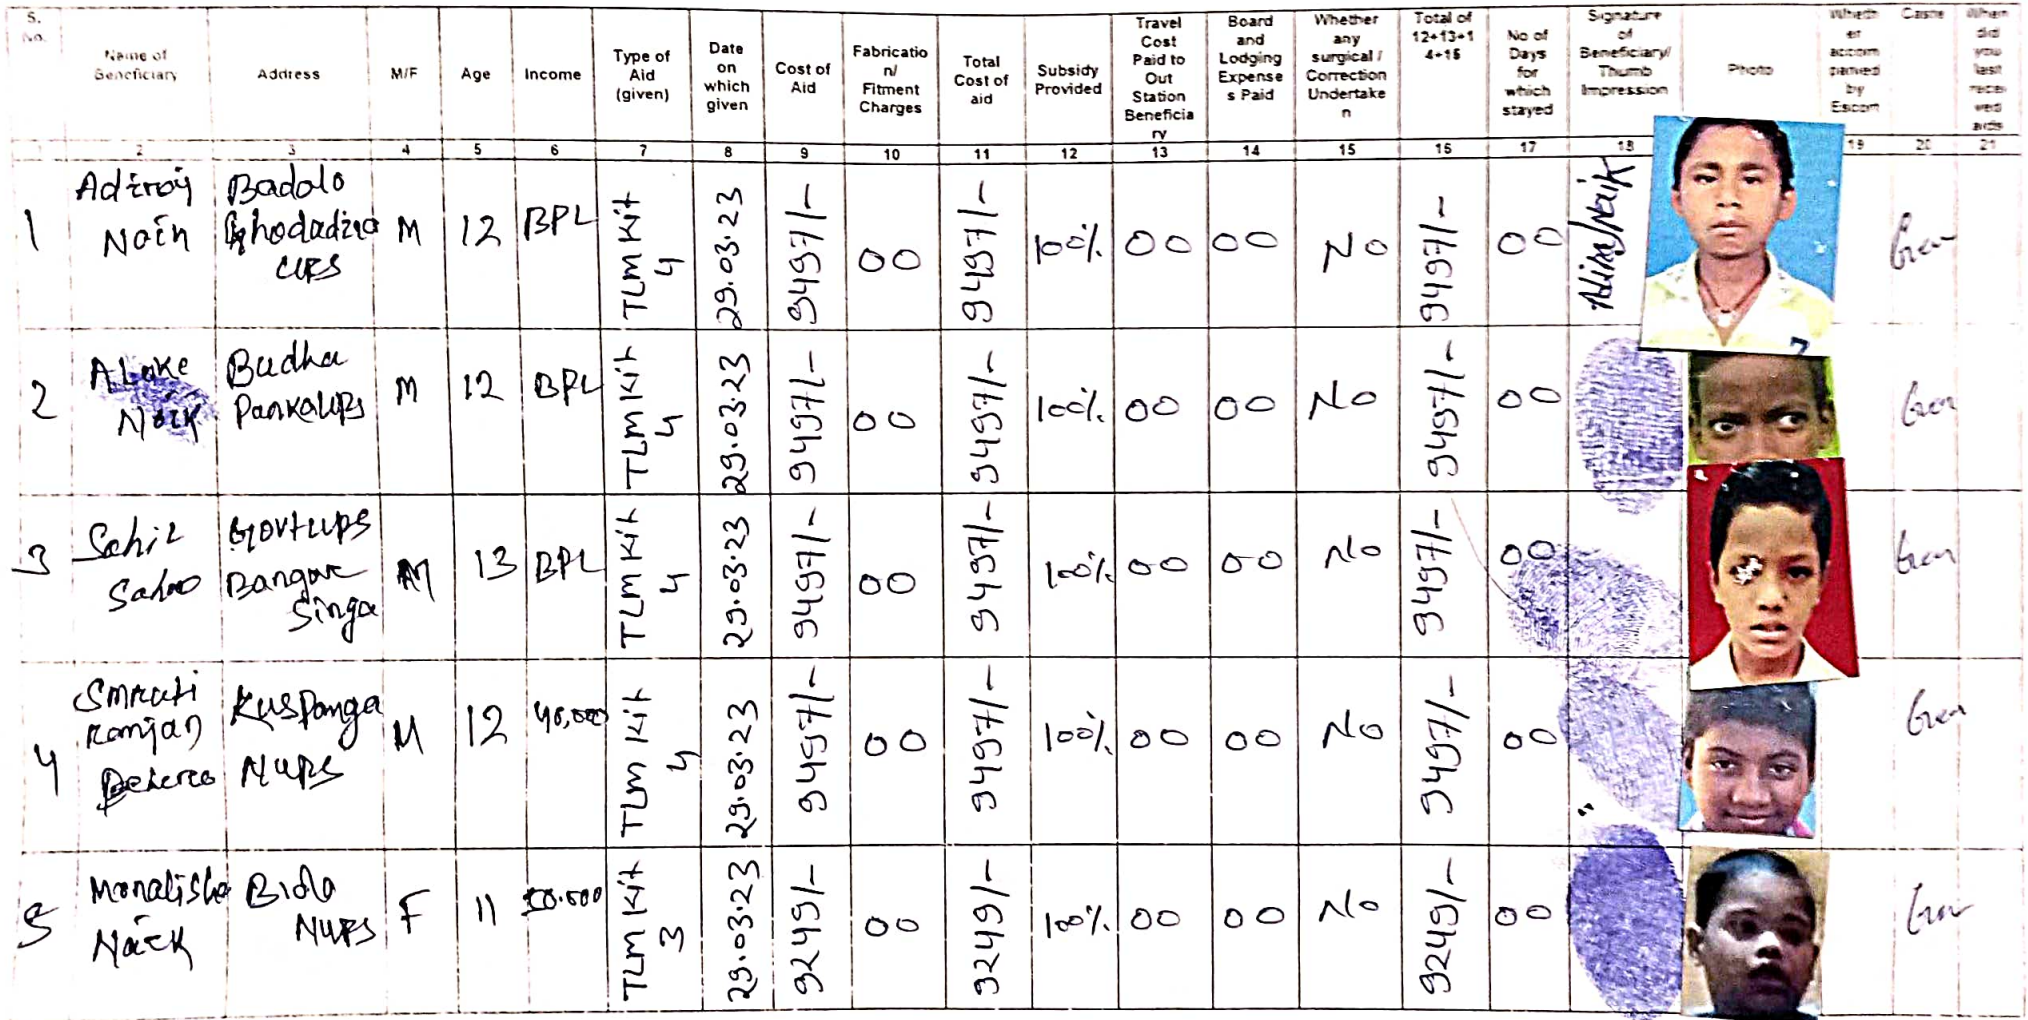 S. No. | Name of Beneficiary | Address | M/F | Age | Income | Type of Aid (given) | Date on which given | Cost of Aid | Fabrication/ Fitment Charges | Total Cost of aid | Subsidy Provided | Travel Cost Paid to Out Station Beneficiary | Board and Lodging Expenses Paid | Whether any surgical / Correction Undertaken | Total of 12+13+14+15 | No of Days for which stayed | Signature of Beneficiary/ Thumb Impression | Photo | Whether accompanied by Escort | Caste | When did you last received aids
1 2 3 4 5 6 7 8 9 10 11 12 13 14 15 16 17 18 19 20 21
1 | Naik | M | 12 | BPL | TLM Kit 4 | 29.03.23 | 9497/- | 00 | 9497/- | 100% | 00 | 00 | No | 9497/- | 00 | Gen
2 | Aloke Naik | Budha Panka UPS | M | 12 | BPL | TLM Kit 4 | 29.03.23 | 9497/- | 00 | 9497/- | 100% | 00 | 00 | No | 9497/- | 00 | Gen
3 | Sahil Sahoo | Govt UPS Bangur Singa | M | 13 | BPL | TLM Kit 4 | 29.03.23 | 9497/- | 00 | 9497/- | 100% | 00 | 00 | No | 9497/- | 00 | Gen
4 | Smruti Ranjan Behera | Kuspanga NUPS | M | 12 | TLM Kit 4 | 29.03.23 | 9497/- | 00 | 9497/- | 100% | 00 | 00 | No | 9497/- | 00 | Gen
5 | Monalisha Naik | NUPS | F | 11 | TLM Kit 3 | 29.03.23 | 9249/- | 00 | 9249/- | 100% | 00 | 00 | No | 9249/- | 00 | Gen